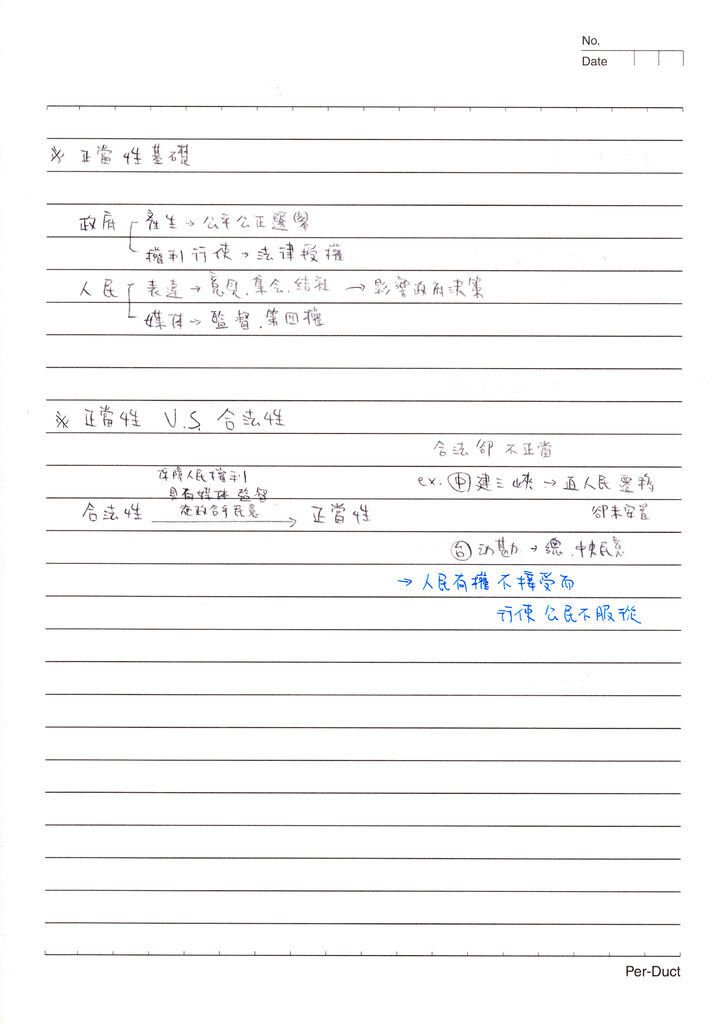 No.
Date
※ 正當性基礎
政府 產生→公平公正選舉
權利行使→法律授權
人民 表達→意見.集会.結社 →影響政府決策
媒体→監督.第四權
※ 正當性 V.S. 合法性
合法卻不正當
保障人民權利
具有媒体監督
施政合乎民意
合法性 → 正當性
ex. 中 建三峽→逼人民遷移
卻未安置
台 →
→人民有權不接受而
行使公民不服從
Per-Duct